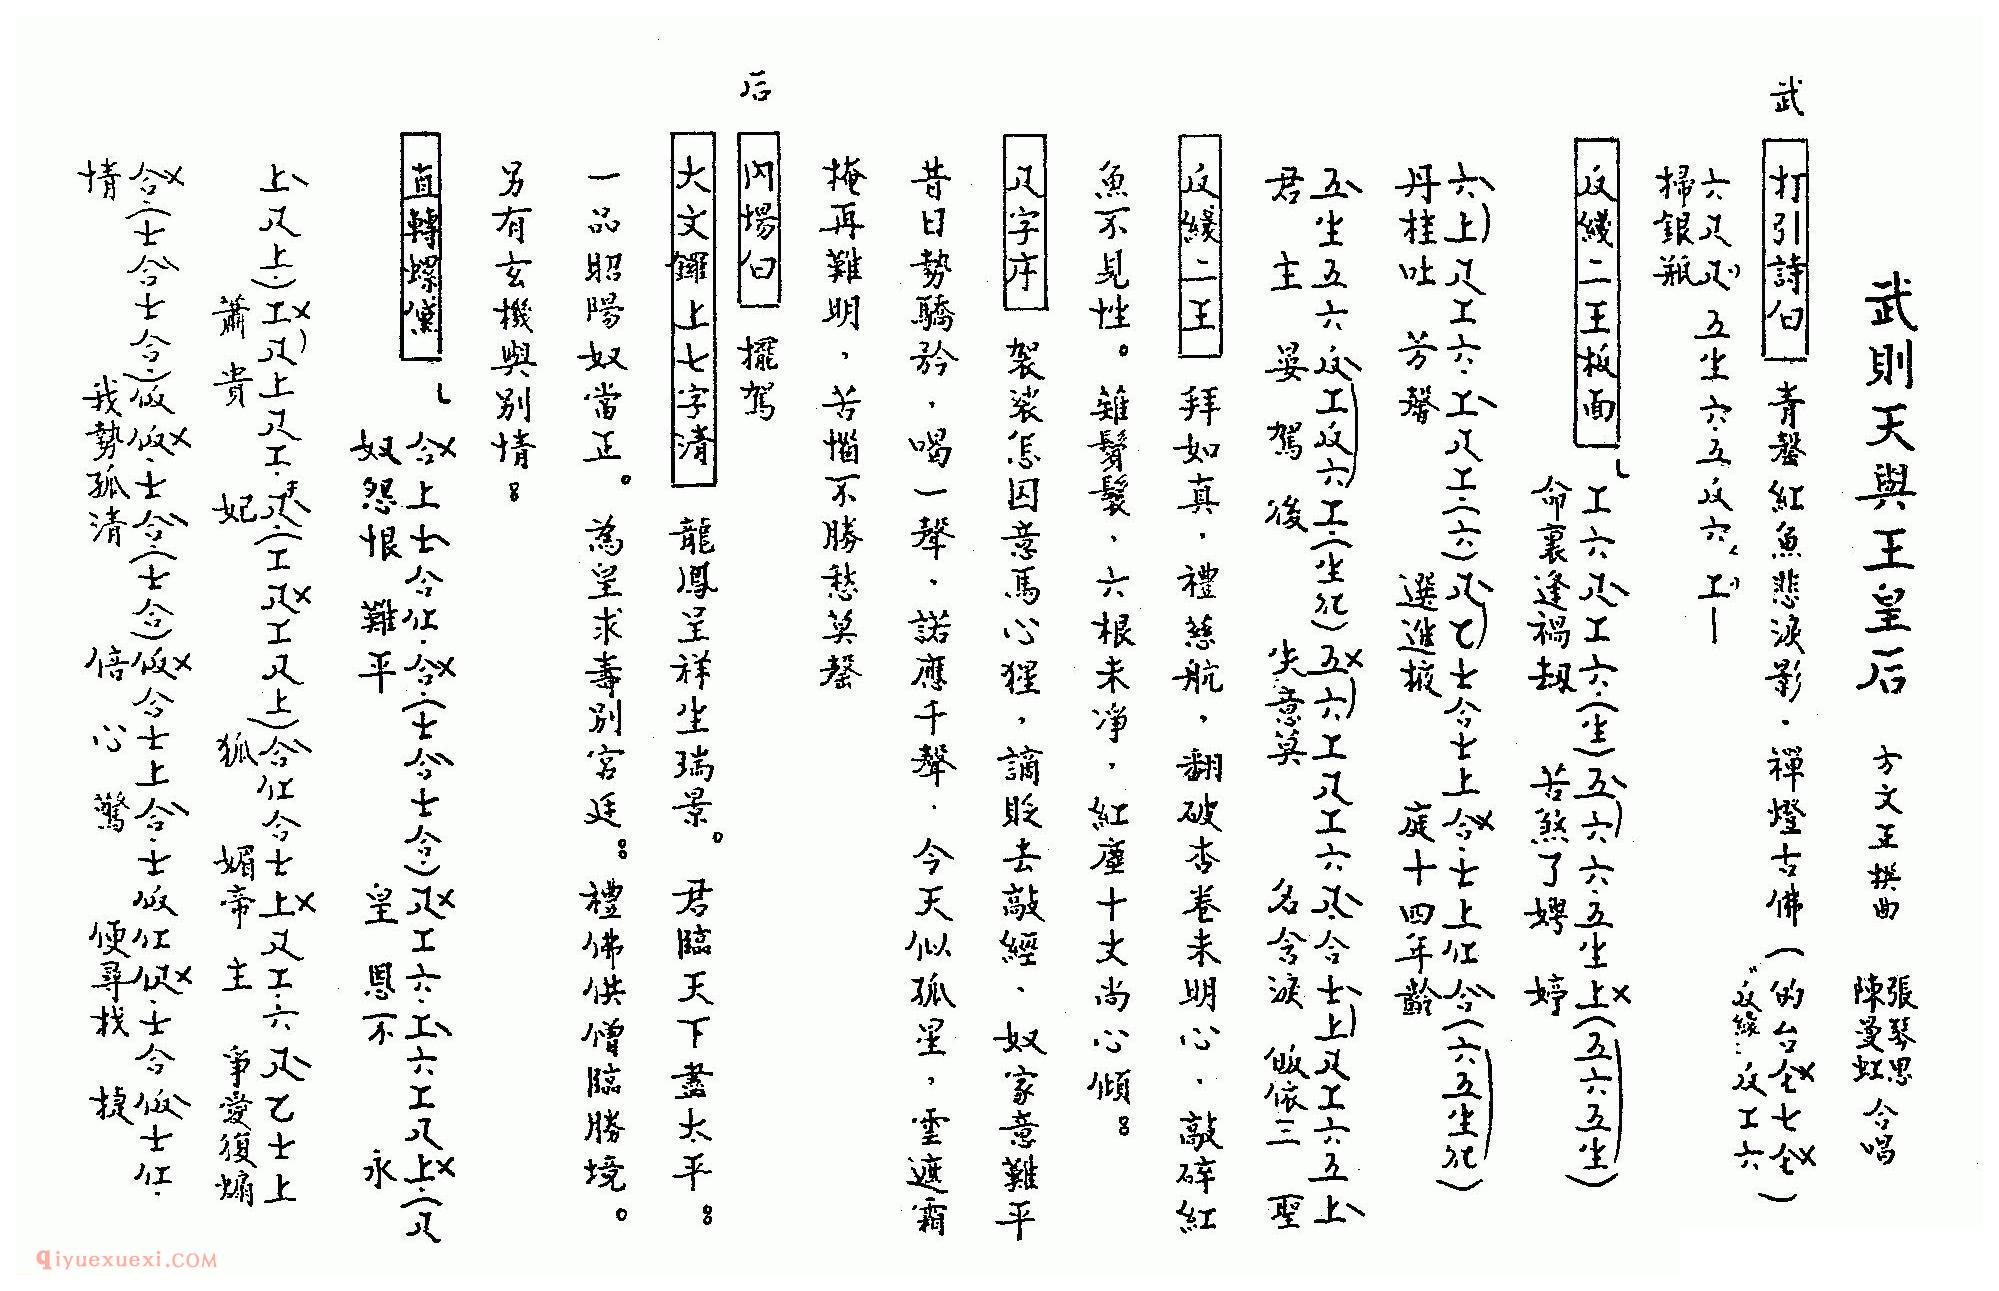 武則天與王皇后 方文正撰曲 張琴思 陳曼虹 合唱
武 打引詩白 青罄紅魚悲淚影．禪燈古佛（的台仝七仝）
"反線：反工六
六尺尺 五生六五反六、工—
掃銀瓶
反綫二王板面 工六尺工六．（生）五六六．五生上（五六五生）
命裏逢禍刼 苦煞了娉婷
六上尺工六．工尺工（六）尺乙士合士上合．士上仩合（六五生𠮙）
丹桂吐 芳馨 選進掖 庭十四年齡
五生五六反工反六工．（生𠮙）五六工尺工六尺．合士上尺工六五上
君 主 晏 駕 後 失意莫 名含淚 皈依三 聖
反綫二王 拜如真．禮慈航，翻破杏卷未明心．敲碎紅
魚不見性。雖鬅髮．六根未淨．紅塵十丈尚心傾：
尺字序 袈裟怎囚意馬心猩，謫貶去敲經．奴家意難平
昔日勢驕矜．喝一聲．諾應千聲．今天似孤星，雲遮霜
掩再難明，苦惱不勝愁莫罄
后 內場白 擺駕
大文鑼上七字清 龍鳳呈祥生瑞景。君臨天下盡太平。：
一品昭陽奴當正。為呈求壽別宮廷。：禮佛供僧臨勝境。
另有玄機與別情：
直轉螺黛 合上士合仩．合（士合士合）尺工六．工六工尺上．（尺
奴怨恨 難平 皇 恩不 永
上尺上）工尺上尺工．尺（工尺工尺上）合仩合士上尺工．六尺乙士上
蕭貴 妃 狐 媚帝 主 爭愛復煽
合（士合士合）仮仮．士合．（士合）仮合士上合．士仮仩仮．士合仮士仩．
情 我勢孤清 倍 心 驚 便尋找 捷
qiyuexuexi.COM